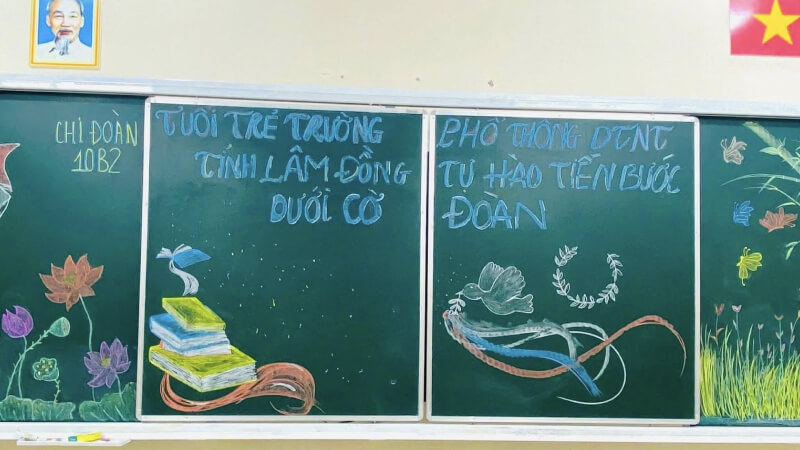 CHI ĐOÀN
10B2
TUỔI TRẺ TRƯỜNG PHỔ THÔNG DTNT
TỈNH LÂM ĐỒNG TỰ HÀO TIẾN BƯỚC
DƯỚI CỜ ĐOÀN